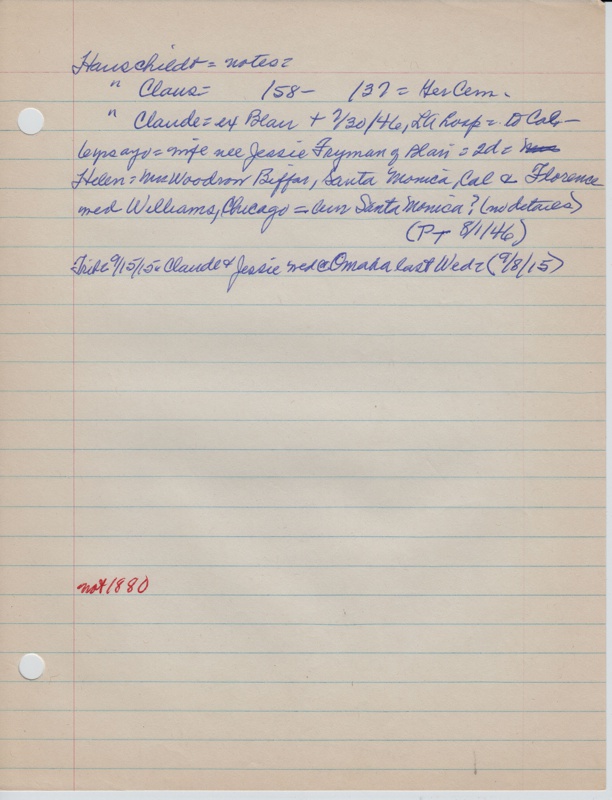 Hauschildt = notes =
" Claus = 158 - 137 = Her Cem.
" Claude = ex Blair + 7/30/46, LA hosp = to Cal -
6 yrs ago = wife nee Jessie Fryman of Blair = 2d =
Helen = Mrs Woodrow Biffar, Santa Monica, Cal & Florence
med Williams, Chicago = bur Santa Monica? (no details)
(PT 8/1/46)
Trib = 9/15/15 = Claude & Jessie med @ Omaha last Wed = (9/8/15)
not 1880